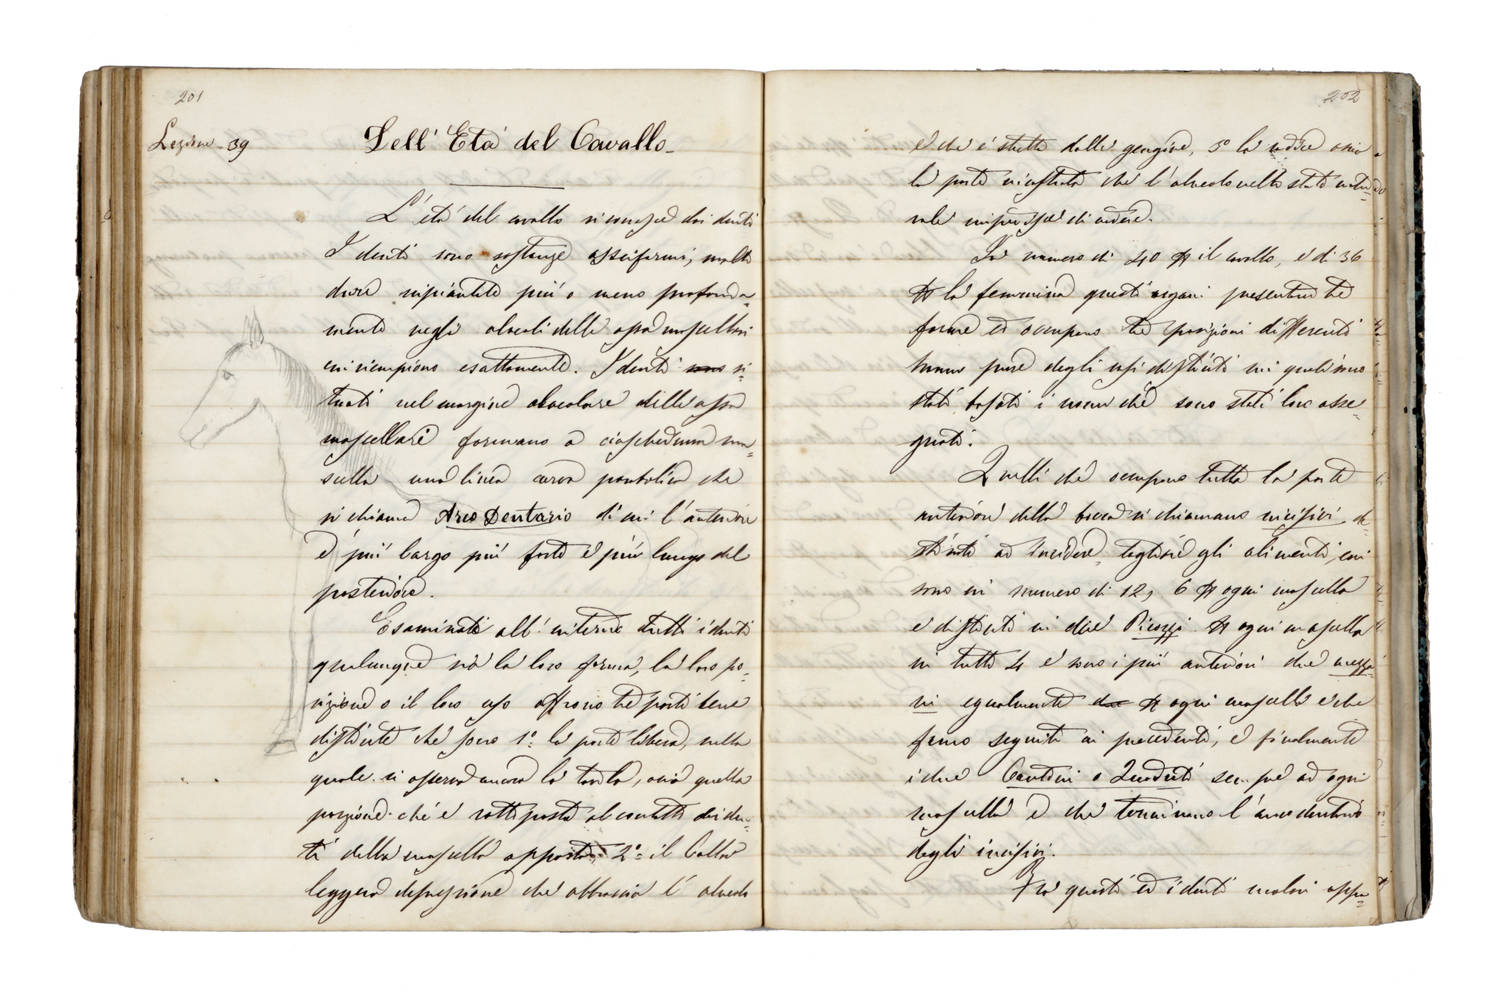 201
Lezione - 39
Dell' Età del Cavallo
L' età del cavallo si conosce dai denti
I denti sono sostanze ossiformi, molto
dure impiantate più o meno profonda=
mente negli alveoli delle ossa mascellari
cui riempiono esattamente. I denti sono si=
tuati nel margine alveolare delle ossa
mascellari formano a ciascheduna ma=
scella una linea curva parabolica che
si chiama Arco Dentario di cui l' anteriore
è più largo più forte e più lungo del
posteriore.
Esaminati all' interno tutti i denti
qualunque sia la loro forma, la loro po=
sizione o il loro uso offrono tre parti bene
distinte che sono 1°: la parte libera, nella
quale si osserva ancora la tavola, ossia quella
porzione che è sottoposta al contatto dei den=
ti della mascella opposta, 2°= il Collo
leggera depressione che abbraccia l' alveolo
202
e che è stretto dalle gengive, 3° la radice ossia
la parte incastrata che l' alveolo nello stato natu=
rale impedisce di vedere.
In numero di 40 il cavallo, e di 36
la femmina questi organi presentano tre
forme ed occupano tre posizioni differenti
hanno pure degli usi distinti su quali sono
stati basati i nomi che sono stati loro asse=
gnati.
Quelli che occupano tutta la parte
anteriore della bocca si chiamano incisivi de=
stinati ad incidere, tagliare gli alimenti, essi
sono in numero di 12, 6 ogni mascella
e distinti in due Picozzi ogni mascella
in tutti 4 e sono i più anteriori due mezza=
ni egualmente ogni mascella e che
fanno seguito ai precedenti, e finalmente
i due Cantoni o sempre ad ogni
mascella e che terminano l' arco dentario
degli incisivi.
Fra questi ed i denti molari appa=